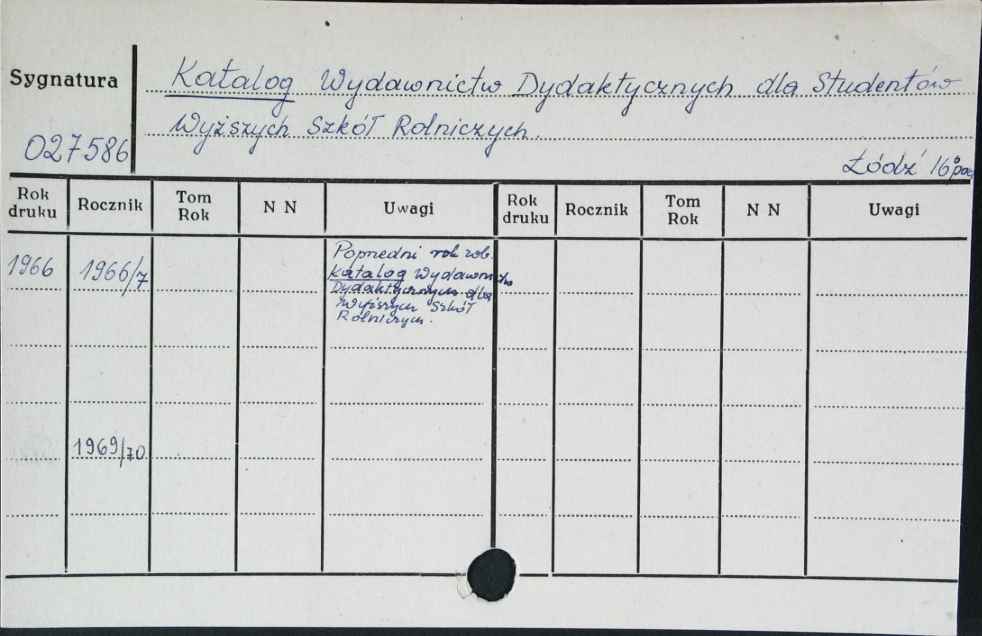 Sygnatura
Katalog Wydawnictw Dydaktycznych dla Studentów
Wyższych Szkół Rolniczych.
027586
Łódź 16°
Rok druku Rocznik Tom Rok N N Uwagi Rok druku Rocznik Tom Rok N N Uwagi
1966 1966/7 Poprzedni rok zob.
Katalog Wydawnictw
Dydaktycznych dla
Wyższych Szkół
Rolniczych.
1969/70